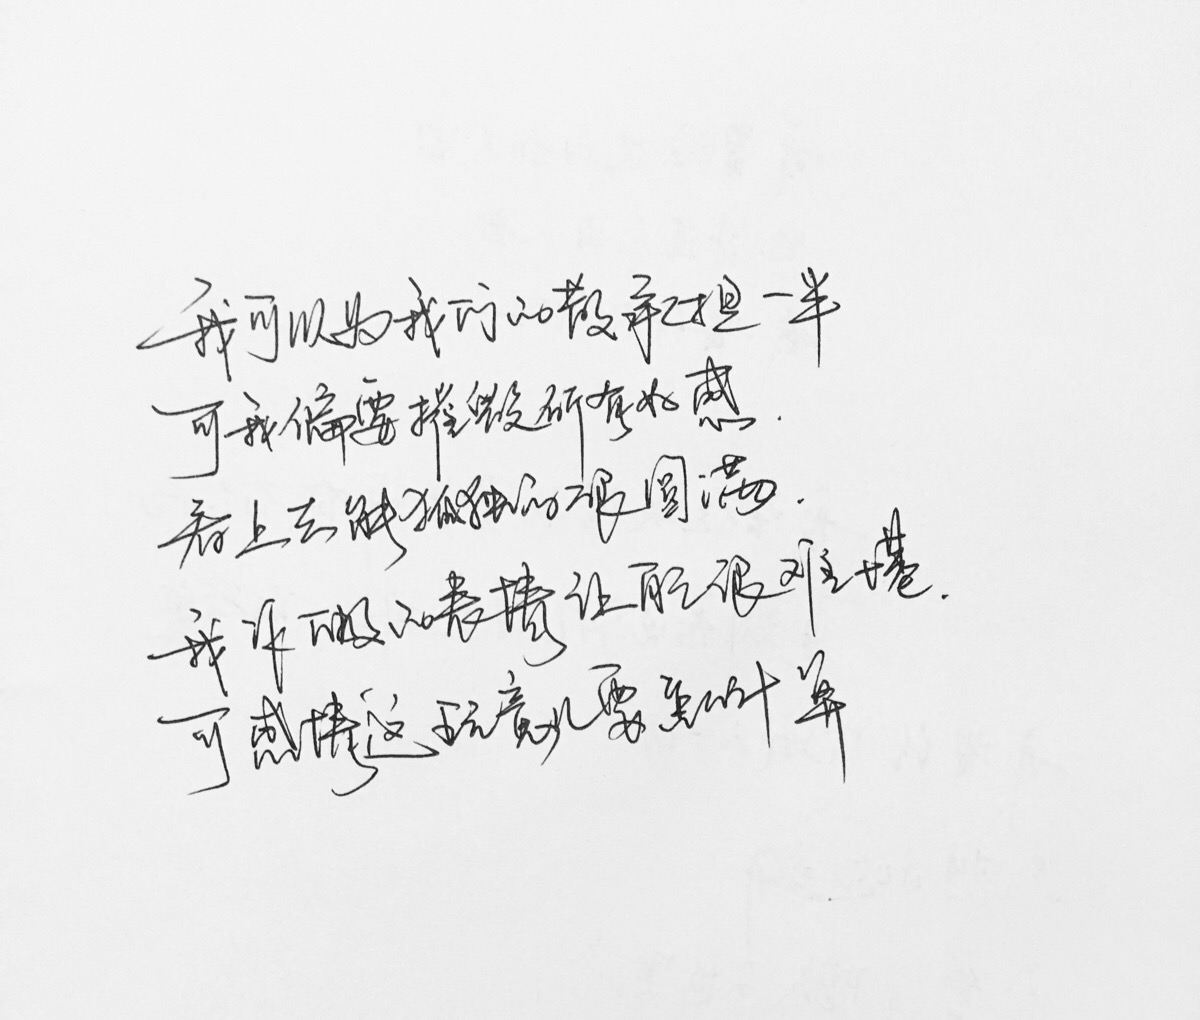 我可以为我们的散承担一半
可我偏要摧毁所有好感.
看上去能孤独的很圆满.
我作做的表情让自己很难堪.
可感情这玩意儿要怎么计算